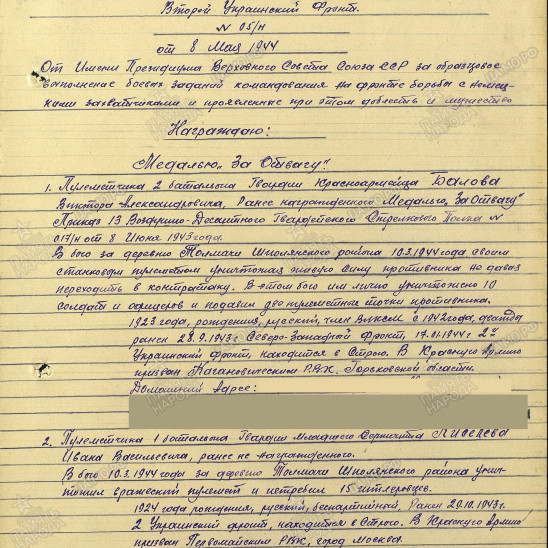 Второй Украинский Фронт.
N 05/н
от 8 Мая 1944
От Имени Президиума Верховного Совета Союза ССР за образцовое
выполнение боевых заданий командования на фронте борьбы с немец-
кими захватчиками и проявленные при этом доблесть и мужество
Награждаю:
Медалью „За Отвагу"
1. Пулеметчика 2 батальона Гвардии Красноармейца Балова
Виктора Александровича, Ранее награжденного Медалью „За Отвагу"
Приказ 13 Воздушно-Десантного Гвардейского Стрелкового Полка N
017/н от 8 Июня 1943 года.
В бою за деревню Толмачи Шполянского района 10.3.1944 года своим
станковым пулеметом уничтожал живую силу противника не давая
переходить в контратаку. В этом бою им лично уничтожено 10
солдат и офицеров и подавил две пулеметные точки противника.
1923 года, рождения, русский, член ВЛКСМ с 1942 года, дважды
ранен 28.9.1943 г. Северо-Западной фронт, 17.01.1944 г. 2й
Украинский фронт, находится в Строю. В Красную Армию
призван Кагановическим РВК. Горьковской области.
Домашний Адрес:
2. Пулеметчика 1 батальона Гвардии Младшего Сержанта
Ивана Васильевича, ранее не награжденного.
В бою 10.3.1944 года за деревню Толмачи Шполянского района унич-
тожил вражеский пулемет и истребил 15 гитлеровцев.
1924 года рождения, русский, беспартийный, Ранен 20.10.1943 г.
2 Украинский фронт, находится в Строю. В Красную Армию
призван Первомайским РВК, город Москва.